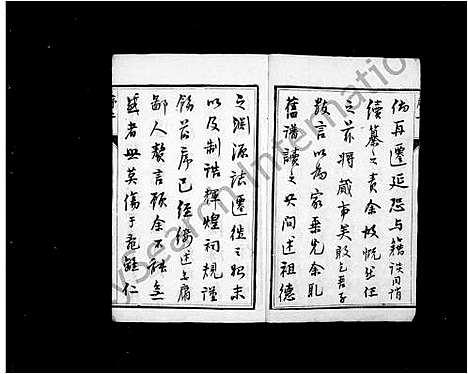 伪再遷延恐与藉談同誚
續纂之責余故慨然任
之茲將蕆事矣殷乞吾子
数言以為家乘光余乃
舊譜讀之其間述祖德
之淵源法遷徙之始末
以及制誥輝煌祠規謹
飭前序已經備述無庸
鄙人贅言顧余不能無
感者無莫傷于范雖仁